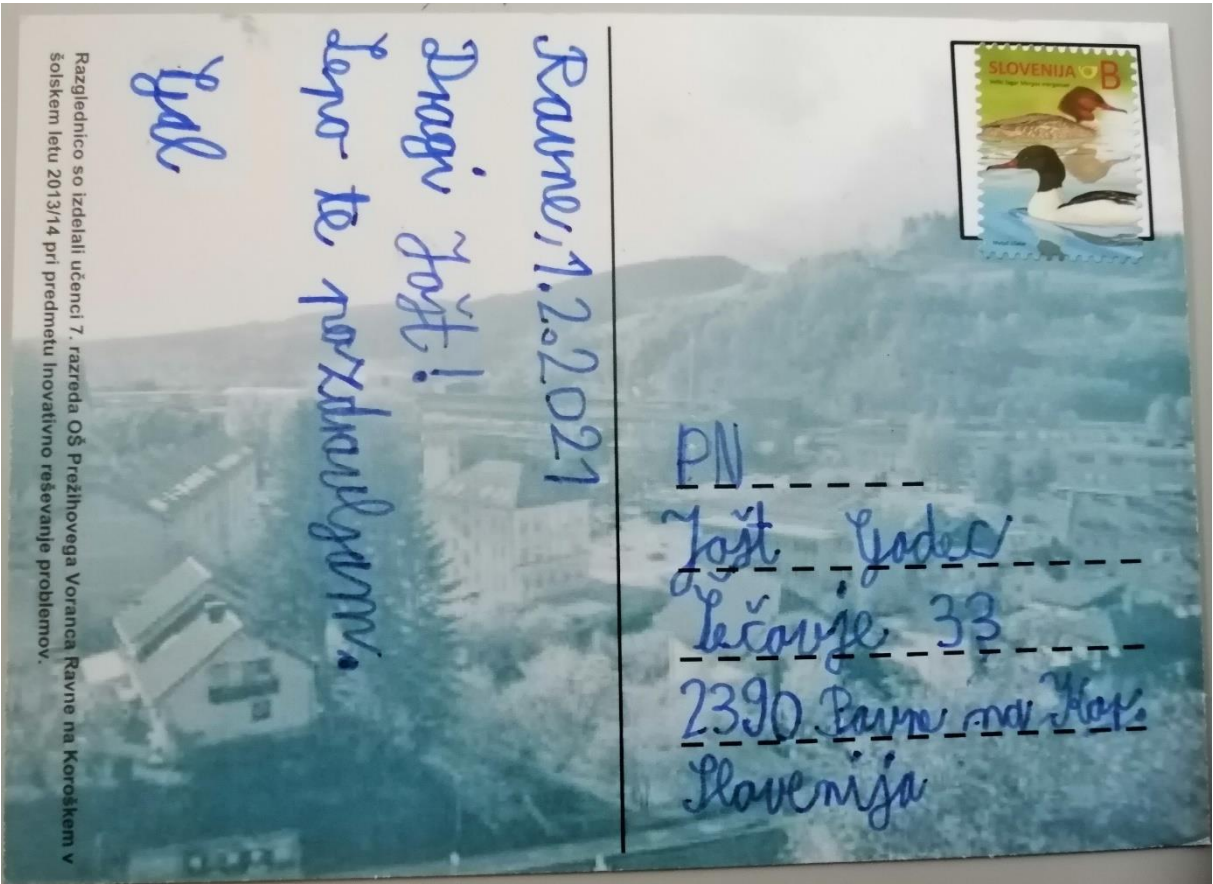 Ravne, 1. 2. 2021
Dragi Jošt!
Lepo te pozdravljam.
Gal
Razglednico so izdelali učenci 7. razreda OŠ Prežihovega Voranca Ravne na Koroškem v
šolskem letu 2013/14 pri predmetu Inovativno reševanje problemov.
SLOVENIJA B
PN
Jošt Gadec
Lečavje 33
2390 Ravne na Kor.
Slovenija